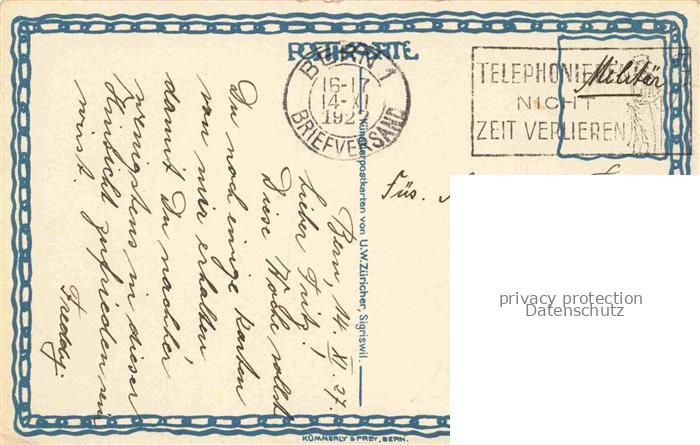 POSTKARTE
BERN 1
16-17
14-XI
1927
BRIEFVERSAND
TELEPHONIEREN
NICHT
ZEIT VERLIEREN
Militär
Bern, 14. XI. 27.
Lieber Fritz!
Diese Woche sollst
Du noch einige Karten
von mir erhalten
damit Du nachher
wenigstens in dieser
Hinsicht zufrieden sein
wirst.
Freddy.
Künstlerpostkarten von U.W.Züricher, Sigriswil.
Füs.
privacy protection
Datenschutz
KÜMMERLY & FREY, BERN.